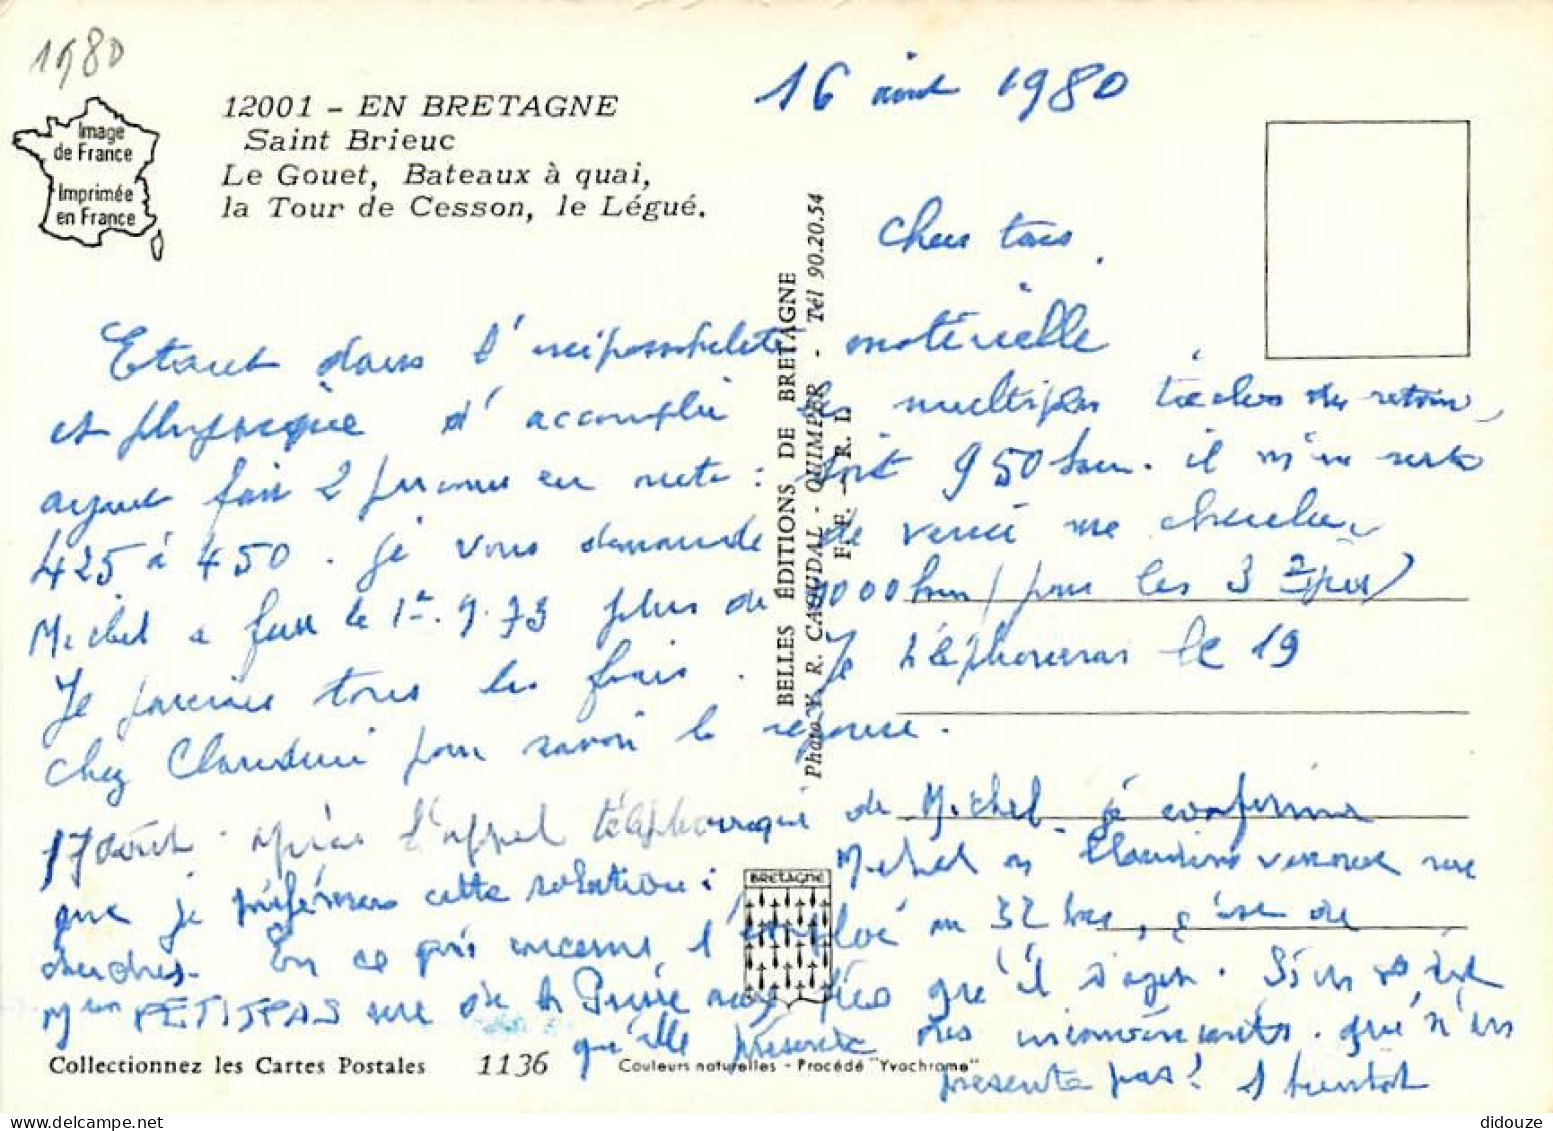 1980
Image
de France
Imprimée
en France
12001 - EN BRETAGNE
Saint Brieuc
Le Gouet, Bateaux à quai,
la Tour de Cesson, le Légué.
16 août 1980
BELLES ÉDITIONS DE BRETAGNE
Photo Y. R. CAOUDAL - QUIMPER - Tél 90.20.54
Chers tous.
Etant dans l'impossibilité matérielle
et physique d'accomplir les multiples tâches du retour,
ayant fait 2 : soit 950 km. il m'en reste
425 à 450. je vous demande de venir me chercher
Michel a fait le 1er.9.79 plus de 1000 km (pour les 3
Je prends tous les frais. Je téléphonerai le 19
chez Claudine pour savoir la réponse.
17 août. après l'appel téléphonique de Michel je confirme
que je préférerais cette solution : Michel ou Claudine venant me
chercher. En ce qui concerne, l'employé au 32 bas, c'est de
PETITPAS que qu'il s'agit. Si
qu'elle présente des inconvénients. qu'n'en
présente pas! A bientôt
BRETAGNE
Collectionnez les Cartes Postales 1136 Couleurs naturelles - Procédé "Yvochrome"
didouze